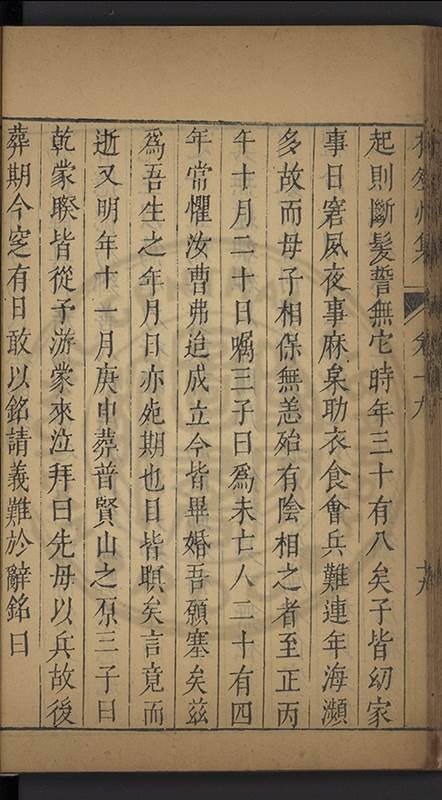 集 卷十九 十九
起則斷髮誓無它時年三十有八矣子皆幼家
事日窘夙夜事麻枲助衣食會兵難連年海瀕
多故而母子相保無恙殆有陰相之者至正丙
午十月二十日囑三子曰爲未亡人二十有四
年常懼汝曹弗迨成立今皆畢婚吾願塞矣茲
爲吾生之年月日亦死期也目皆瞑矣言竟而
逝又明年十一月庚申葬普賢山之原三子曰
乾蒙聧皆從予游蒙來泣拜曰先母以兵故後
葬期今窆有日敢以銘請義難於辭銘曰